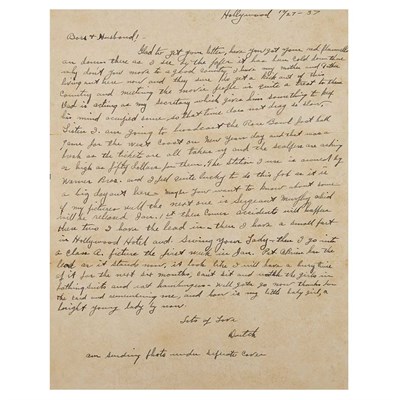 Hollywood 12/27-37
Bess & Husband:
Glad to get your letter, hope you got your red flannels
on down there as I see by the paper it has been cold down there
why don't you move to a good country, I have my mother and father
living out here now and they sure do get a kick out of this
Country and meeting the movie people is quite a treat to them
Dad is acting as my secretary which gives him something to keep
his mind occupied some, so that time does not drag so slow.
I am going to broadcast the Rose Bowl foot ball
Game for the west Coast on New Years day and that was a
break as the tickets are all taken up and the scalpers are asking
as high as fifty Dollars for them. The station I use is owned by
Warner Bros. and I feel quite lucky to do this job as it is
a big day out here. Maybe you want to know about some
of my pictures well the next one is Sergeant Murphy which
will be released Jan. 1st then comes Accidents will happen
these two I have the lead in. then I have a small part
in Hollywood Hotel and Swing your Lady. then I go into
a Class A. picture the first week in Jan. Pat O'Brien has the
lead as it stands now, it looks like I will have a busy time
of it for the next six months, can't sit and watch the girls in
bathing suits and eat hamburgers. Well gotta go now thanks for
the card and remembering me, and how is my little baby girl, a
bright young lady by now.
Lots of Love
Dutch
am sending photo under separate cover